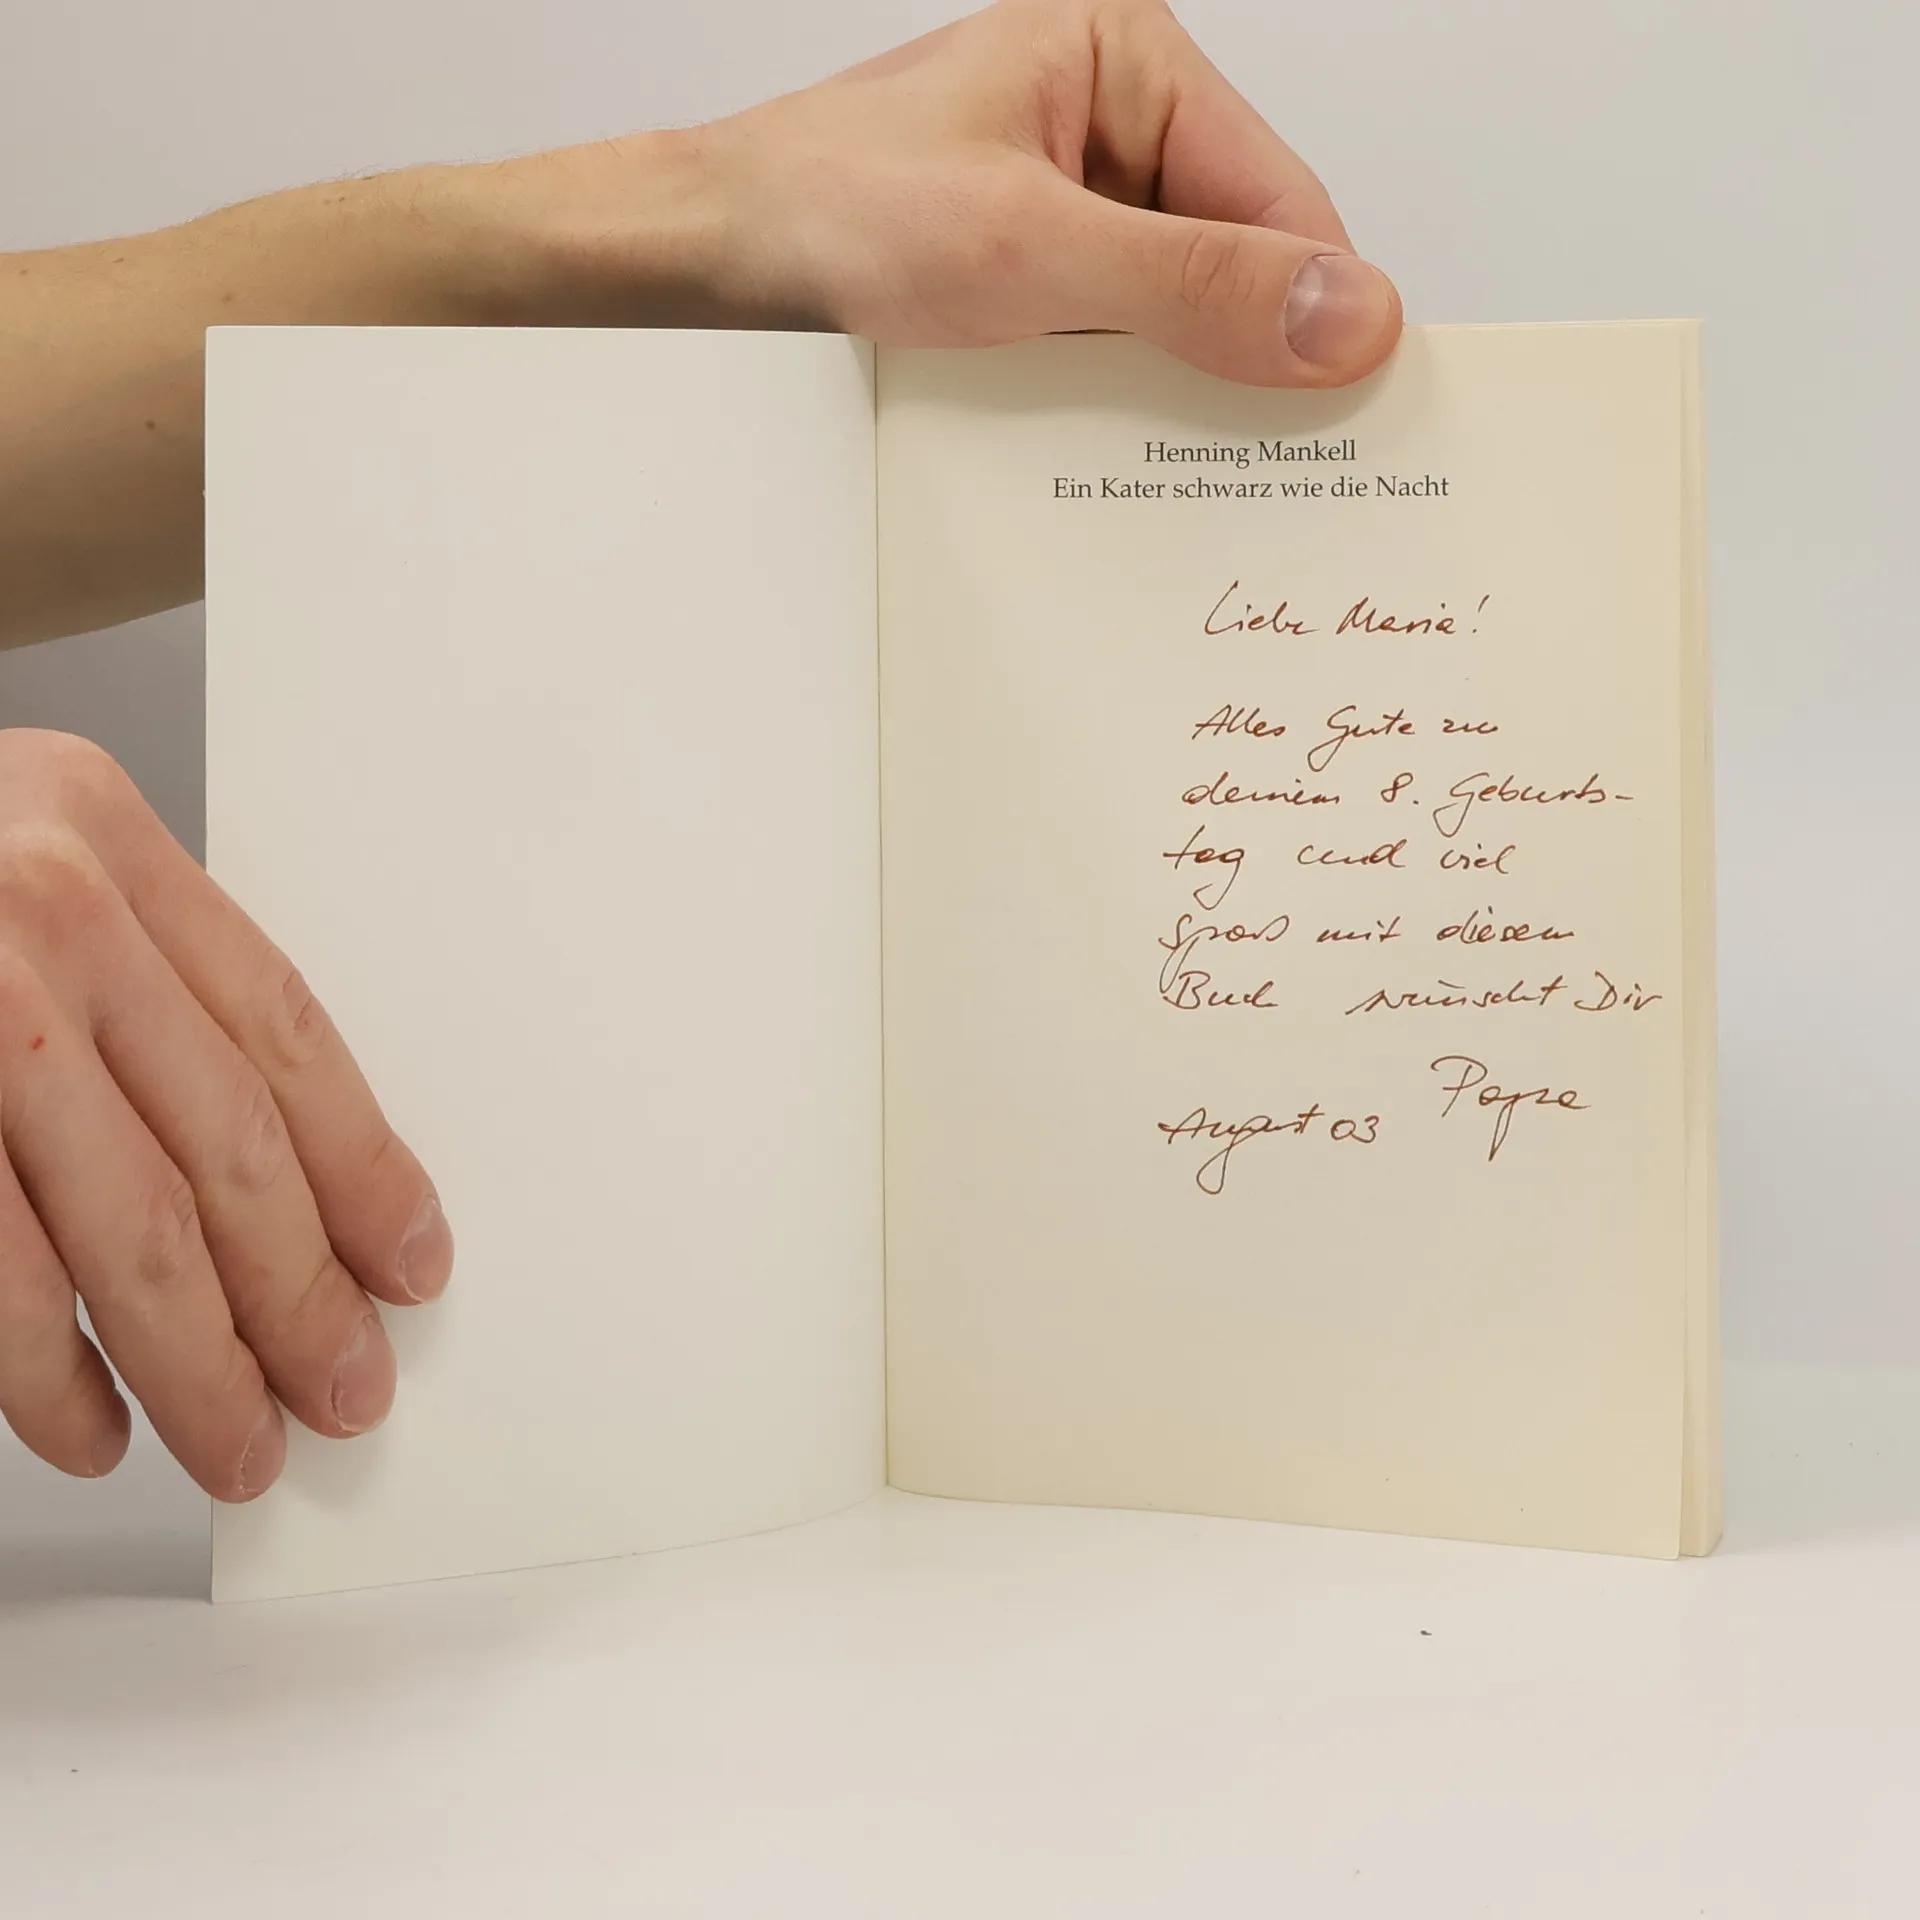 Henning Mankell
Ein Kater schwarz wie die Nacht
Liebe Maria!
Alles Gute zu
deinem 8. Geburts-
tag und viel
Spaß mit diesem
Buch wünscht Dir
Papa
August 03